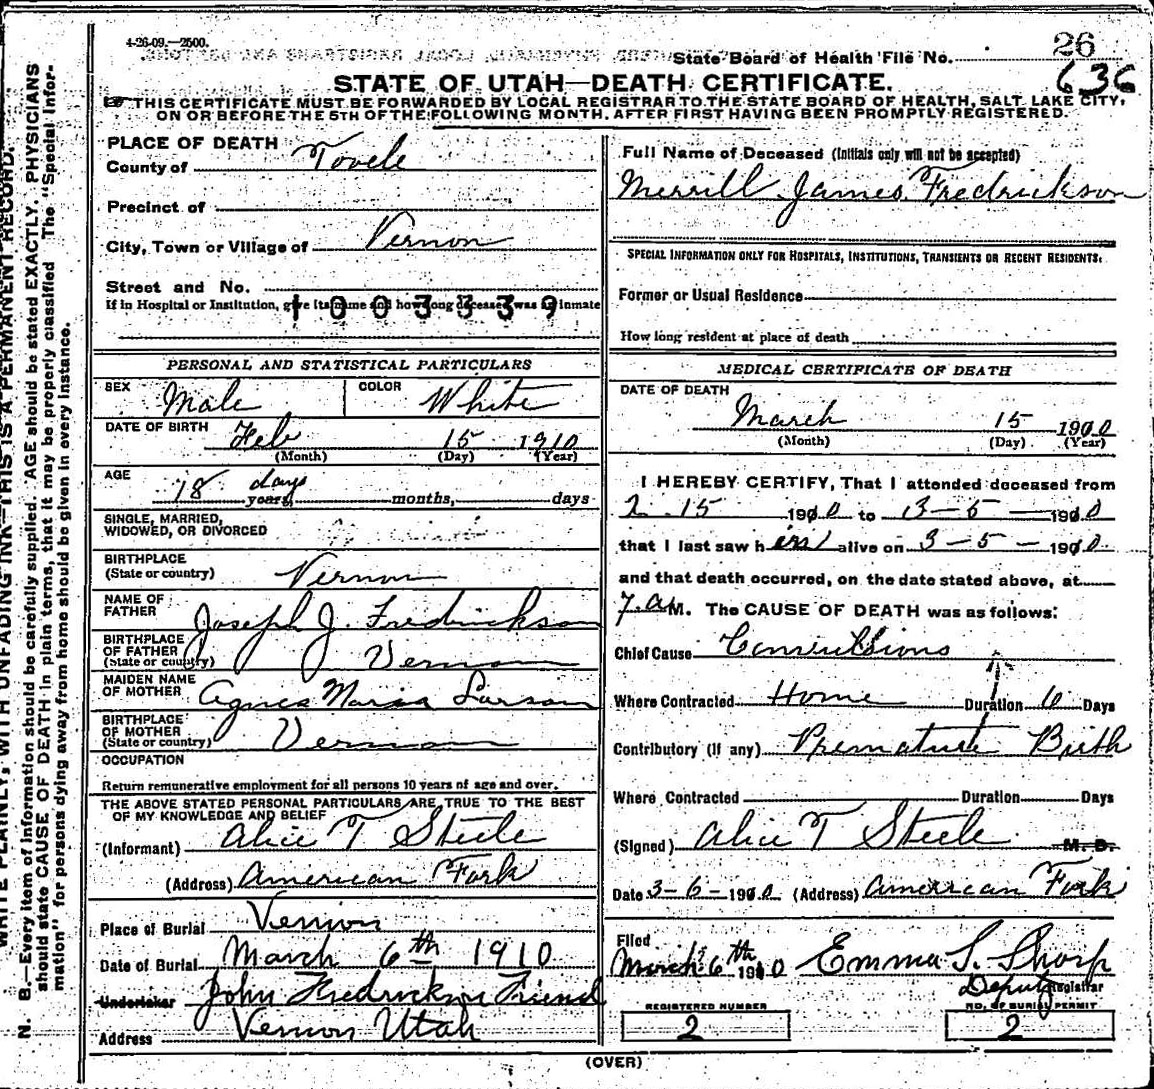 4-26-09.—2500.
State Board of Health File No. 26
636
STATE OF UTAH—DEATH CERTIFICATE.
THIS CERTIFICATE MUST BE FORWARDED BY LOCAL REGISTRAR TO THE STATE BOARD OF HEALTH, SALT LAKE CITY,
ON OR BEFORE THE 5TH OF THE FOLLOWING MONTH, AFTER FIRST HAVING BEEN PROMPTLY REGISTERED.
PLACE OF DEATH
County of Tooele
Precinct of
City, Town or Village of Vernon
Street and No.
If in Hospital or Institution, give its name and how long deceased was an inmate
1003339
PERSONAL AND STATISTICAL PARTICULARS
SEX Male COLOR White
DATE OF BIRTH Feb 15 1910
(Month) (Day) (Year)
AGE 18 days
years, months, days
SINGLE, MARRIED,
WIDOWED, OR DIVORCED
BIRTHPLACE
(State or country) Vernon
NAME OF
FATHER Joseph J. Fredrickson
BIRTHPLACE
OF FATHER
(State or country) Vernon
MAIDEN NAME
OF MOTHER Agnes Maria Larson
BIRTHPLACE
OF MOTHER
(State or country) Vernon
OCCUPATION
Return remunerative employment for all persons 10 years of age and over.
THE ABOVE STATED PERSONAL PARTICULARS ARE TRUE TO THE BEST
OF MY KNOWLEDGE AND BELIEF
(Informant) Alice T Steele
(Address) American Fork
Place of Burial Vernon
Date of Burial March 6th 1910
Undertaker John Fredrickson Friend
Address Vernon Utah
Full Name of Deceased (Initials only will not be accepted)
Merrill James Fredrickson
SPECIAL INFORMATION ONLY FOR HOSPITALS, INSTITUTIONS, TRANSIENTS OR RECENT RESIDENTS:
Former or Usual Residence
How long resident at place of death
MEDICAL CERTIFICATE OF DEATH
DATE OF DEATH
March 15 1910
(Month) (Day) (Year)
I HEREBY CERTIFY, That I attended deceased from
2 15 1910 to 3-5-1910
that I last saw him alive on 3-5-1910
and that death occurred, on the date stated above, at
7 a M. The CAUSE OF DEATH was as follows:
Chief Cause Convulsions
Where Contracted Home Duration 10 Days
Contributory (if any) Premature Birth
Where Contracted Duration Days
(Signed) Alice T Steele M. D.
Date 3-6-1910 (Address) American Fork
Filed
March 6th 1910 Emma S. Sharp
Deputy Registrar
REGISTERED NUMBER 2
NO. OF BURIAL PERMIT 2
(OVER)
WRITE PLAINLY, WITH UNFADING INK—THIS IS A PERMANENT RECORD.
N. B.—Every item of information should be carefully supplied. AGE should be stated EXACTLY. PHYSICIANS
should state CAUSE OF DEATH in plain terms, that it may be properly classified. The "Special Infor-
mation" for persons dying away from home should be given in every instance.